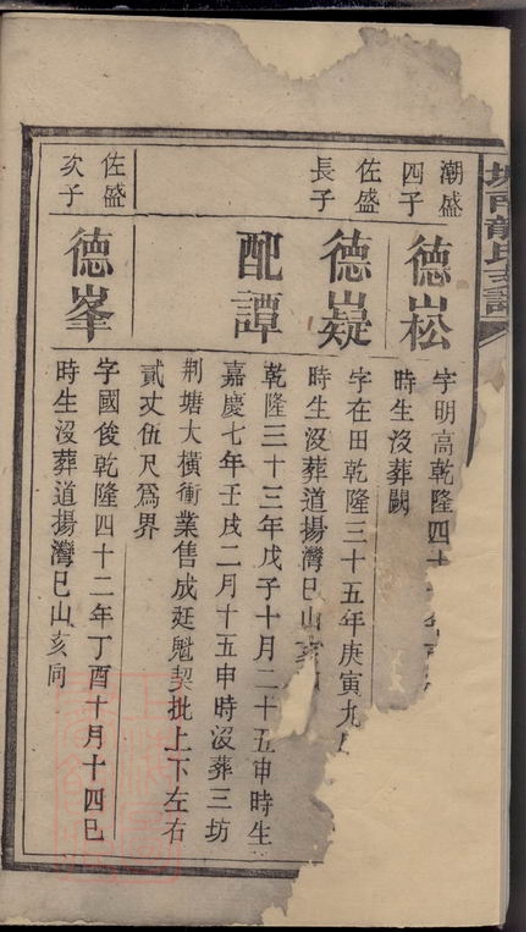 龍氏支譜
潮盛
四子
德崧
字明高乾隆四十
時生沒葬闕
佐盛
長子
德嶷
字在田乾隆三十五年庚寅九月
時生沒葬道揚灣巳山亥
配譚
乾隆三十三年戊子十月二十五申時生
嘉慶七年壬戌二月十五申時沒葬三坊
荆塘大橫衝業售成廷魁契批上下左右
貳丈伍尺爲界
佐盛
次子
德峯
字國俊乾隆四十二年丁酉十月十四巳
時生沒葬道揚灣巳山亥向